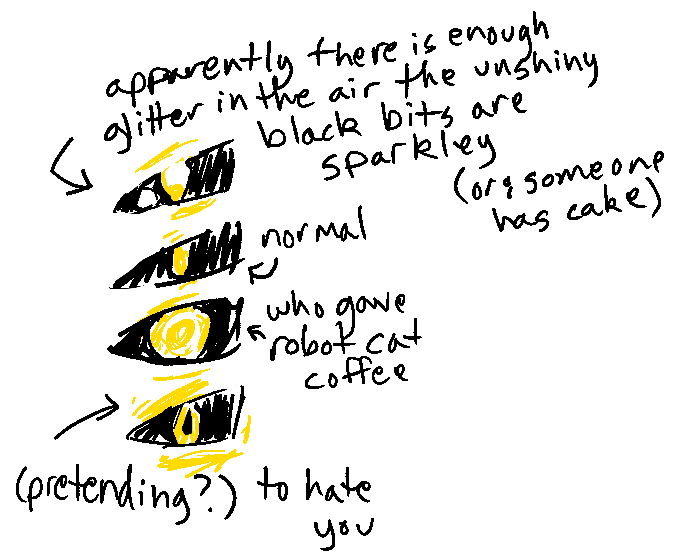 apparently there is enough
glitter in the air the unshiny
black bits are
sparkley
(or someone
has cake)
normal
who gave
robot cat
coffee
(pretending?) to hate
you